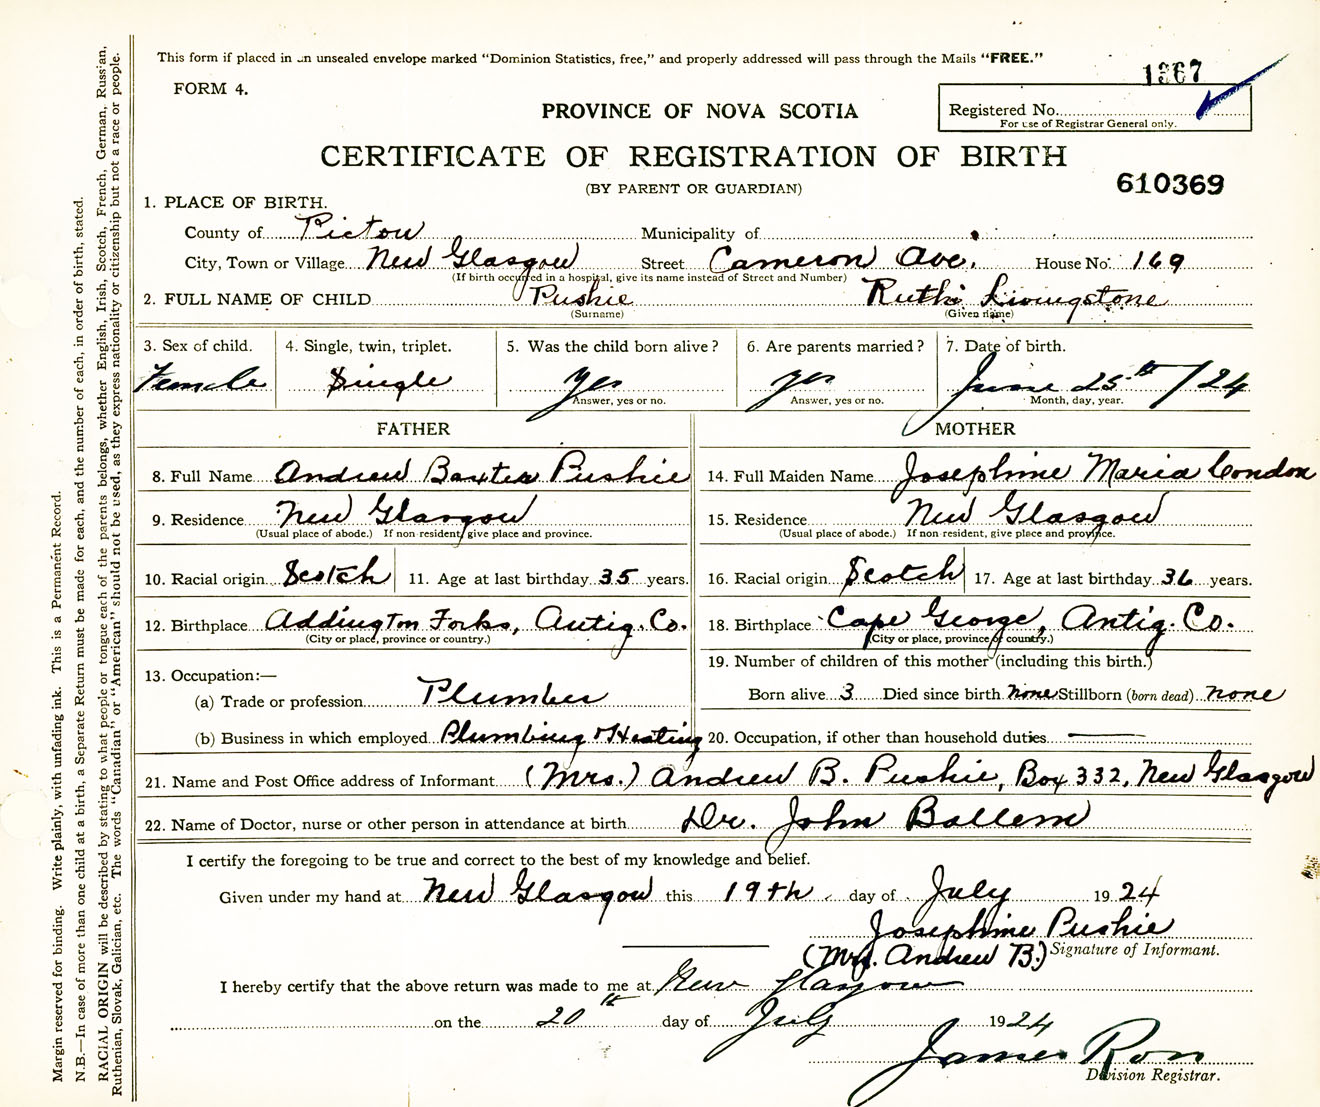 This form if placed in an unsealed envelope marked "Dominion Statistics, free," and properly addressed will pass through the Mails "FREE."
1367
FORM 4.
Registered No.
For use of Registrar General only.
PROVINCE OF NOVA SCOTIA
CERTIFICATE OF REGISTRATION OF BIRTH
(BY PARENT OR GUARDIAN)
610369
1. PLACE OF BIRTH.
County of Pictou Municipality of
City, Town or Village New Glasgow Street Cameron Ave. House No. 169
(If birth occurred in a hospital, give its name instead of Street and Number)
2. FULL NAME OF CHILD Pushie Ruth Livingstone
(Surname) (Given name)
3. Sex of child. 4. Single, twin, triplet. 5. Was the child born alive? 6. Are parents married? 7. Date of birth.
Female Single yes yes June 25th /24
Answer, yes or no. Answer, yes or no. Month, day, year.
FATHER MOTHER
8. Full Name Andrew Baxter Pushie 14. Full Maiden Name Josephine Maria Condon
9. Residence New Glasgow 15. Residence New Glasgow
(Usual place of abode.) If non-resident, give place and province. (Usual place of abode.) If non-resident, give place and province.
10. Racial origin Scotch 11. Age at last birthday 35 years. 16. Racial origin Scotch 17. Age at last birthday 36 years.
12. Birthplace Addington Forks, Antig. Co. 18. Birthplace Cape George, Antig. Co.
(City or place, province or country.) (City or place, province or country.)
13. Occupation:— 19. Number of children of this mother (including this birth.)
(a) Trade or profession Plumber Born alive 3 Died since birth none Stillborn (born dead) none
(b) Business in which employed Plumbing & Heating 20. Occupation, if other than household duties —
21. Name and Post Office address of Informant (Mrs.) Andrew B. Pushie, Box 332, New Glasgow
22. Name of Doctor, nurse or other person in attendance at birth Dr. John Ballem
I certify the foregoing to be true and correct to the best of my knowledge and belief.
Given under my hand at New Glasgow this 19th day of July 1924
Josephine Pushie
(Mrs. Andrew B.) Signature of Informant.
I hereby certify that the above return was made to me at New Glasgow
on the 20th day of July 1924
James Ross
Division Registrar.
Margin reserved for binding. Write plainly, with unfading ink. This is a Permanent Record.
N.B.—In case of more than one child at a birth, a Separate Return must be made for each, and the number of each, in order of birth, stated.
RACIAL ORIGIN will be described by stating to what people or tongue each of the parents belongs, whether English, Irish, Scotch, French, German, Russian,
Ruthenian, Slovak, Galician, etc. The words "Canadian" or "American" should not be used, as they express nationality or citizenship but not a race or people.